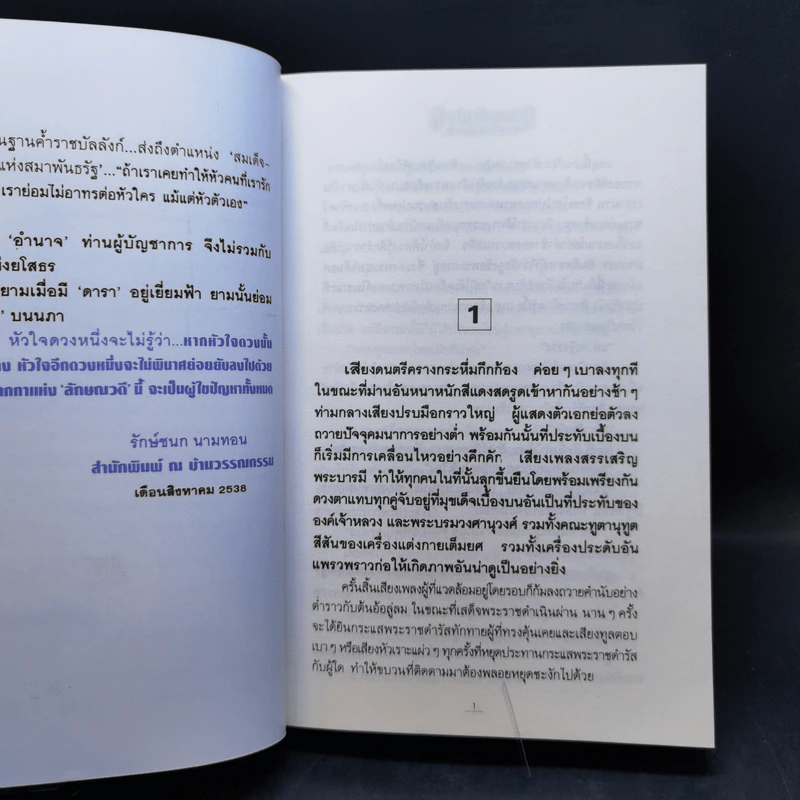 นฐานค้ำราชบัลลังก์...ส่งถึงตำแหน่ง ‘สมเด็จ-
แห่งสมาพันธรัฐ’...“ถ้าเราเคยทำให้หัวคนที่เรารัก
เราย่อมไม่อาทรต่อหัวใคร แม้แต่หัวตัวเอง”
‘อำนาจ’ ท่านผู้บัญชาการ จึงไม่รวมกับ
่งยโสธร
ยามเมื่อมี ‘ดารา’ อยู่เยี่ยมฟ้า ยามนั้นย่อม
’ บนนภา
หัวใจดวงหนึ่งจะไม่รู้ว่า...หากหัวใจดวงนั้น
ง หัวใจอีกดวงหนึ่งจะไม่พินาศย่อยยับลงไปด้วย
ากกาแห่ง ‘ลักษณวดี’ นี้ จะเป็นผู้ไขปัญหาทั้งหมด
รักษ์ชนก นามทอน
สำนักพิมพ์ ณ บ้านวรรณกรรม
เดือนสิงหาคม 2538
1
เสียงดนตรีครางกระหึ่มกึกก้อง ค่อย ๆ เบาลงทุกที
ในขณะที่ม่านอันหนาหนักสีแดงสดรูดเข้าหากันอย่างช้า ๆ
ท่ามกลางเสียงปรบมือกราวใหญ่ ผู้แสดงตัวเอกย่อตัวลง
ถวายปัจจุคมนาการอย่างต่ำ พร้อมกันนั้นที่ประทับเบื้องบน
ก็เริ่มมีการเคลื่อนไหวอย่างคึกคัก เสียงเพลงสรรเสริญ
พระบารมี ทำให้ทุกคนในที่นั้นลุกขึ้นยืนโดยพร้อมเพรียงกัน
ดวงตาแทบทุกคู่จับอยู่ที่มุขเด็จเบื้องบนอันเป็นที่ประทับของ
องค์เจ้าหลวง และพระบรมวงศานุวงศ์ รวมทั้งคณะทูตานุทูต
สีสันของเครื่องแต่งกายเต็มยศ รวมทั้งเครื่องประดับอัน
แพรวพราวก่อให้เกิดภาพอันน่าดูเป็นอย่างยิ่ง
ครั้นสิ้นเสียงเพลงผู้ที่แวดล้อมอยู่โดยรอบก็ก้มลงถวายคำนับอย่าง
ต่ำราวกับต้นอ้อลู่ลม ในขณะที่เสด็จพระราชดำเนินผ่าน นาน ๆ ครั้ง
จะได้ยินกระแสพระราชดำรัสทักทายผู้ที่ทรงคุ้นเคยและเสียงทูลตอบ
เบา ๆ หรือเสียงหัวเราะแผ่ว ๆ ทุกครั้งที่หยุดประทานกระแสพระราชดำรัส
กับผู้ใด ทำให้ขบวนที่ติดตามมาต้องพลอยหยุดชะงักไปด้วย
1